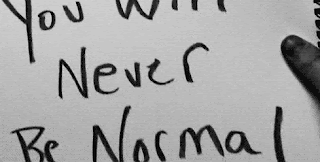 You Will
Never
Be Normal